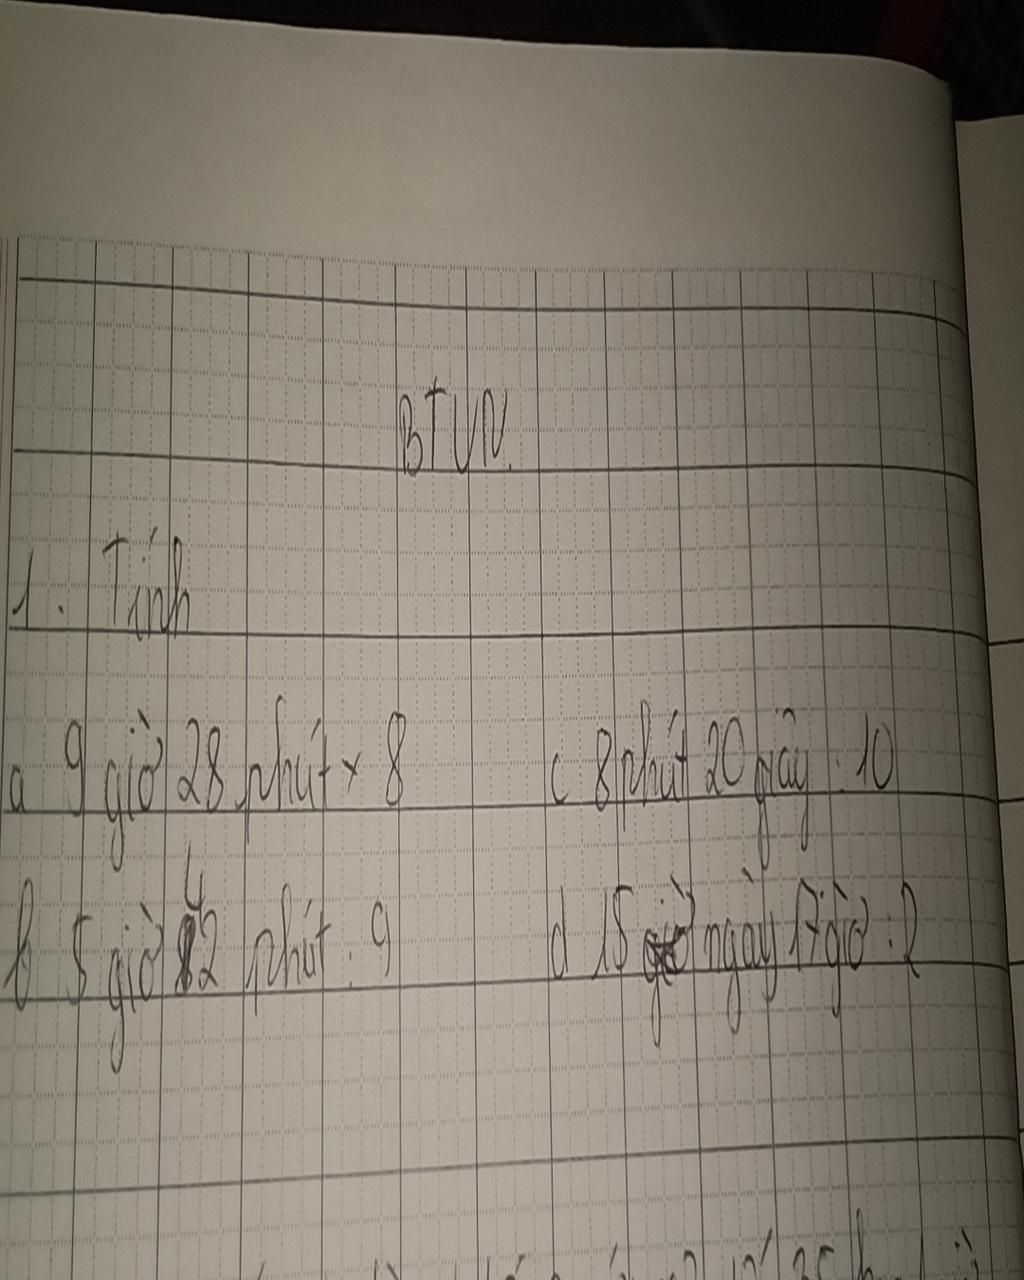 BTVN.
1. Tính
a 9 giờ 28 phút x 8 c 8 phút 20 giây : 10
b 5 giờ 42 phút : 9 d 15 ngày 17 giờ : 2